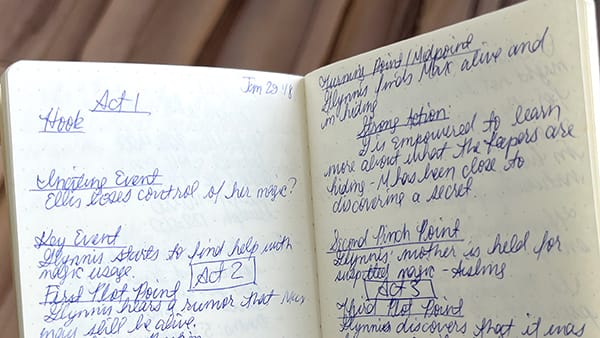 Jan 29 '18
Act 1
Hook
Inciting Event
Ellis loses control of her magic?
Key Event
Glynnis starts to find help with
magic usage.
Act 2
First Plot Point
Glynnis hears a rumor that Max
may still be alive.
Turning Point/Midpoint
Glynnis finds Max, alive and
in hiding
Strong Action:
G is empowered to learn
more about what the Keepers are
hiding - M has been close to
discovering a secret.
Second Pinch Point
Glynnis' mother is held for
suspected magic - Aisling
Act 3
Third Plot Point
Glynnis discovers that it was